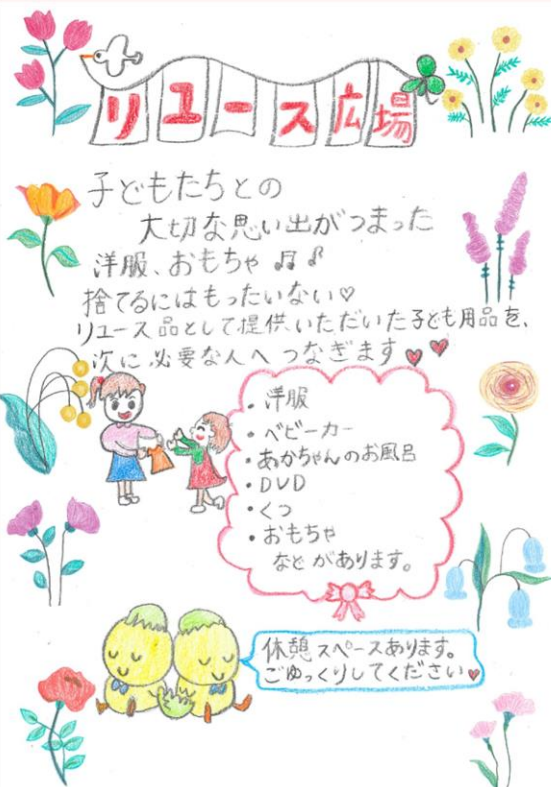 リユース広場
子どもたちとの
大切な思い出がつまった
洋服、おもちゃ♬♪
捨てるにはもったいない♡
リユース品として提供いただいた子ども用品を、
次に必要な人へつなぎます♥♥
・洋服
・ベビーカー
・あかちゃんのお風呂
・DVD
・くつ
・おもちゃ
などがあります。
休憩スペースあります。
ごゆっくりしてください♥